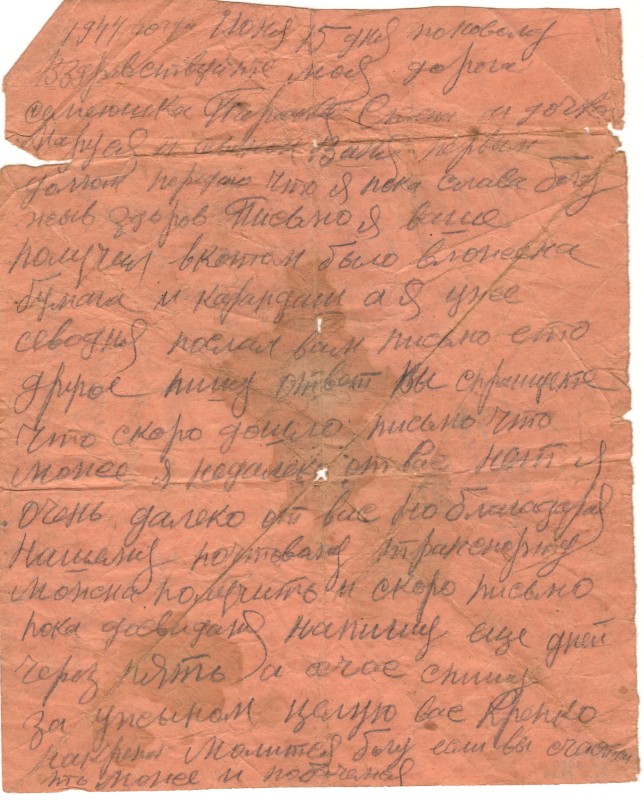 1944 года Июня 15 дня
Вздравствуйте моя дорога
семюшка и дочка
Маруся и Вам первым
долгом передаю что я пока слава богу
жыв здоров Письмо я ваше
получил вкотом было вложена
бумага и карандаш а я уже
севодня послал вам письмо ето
другое пишу ответ Вы спрашуете
что скоро дошло письмо что
може я недалеко от вас нет я
очень далеко от вас но благодаря
нашему почтовому транспорту
можна получить и скоро письмо
пока досвидания напишу еще дней
через пять а счас спишу
за ужыном целую вас крепко
молитеся богу если вы счастли
може и побачемся